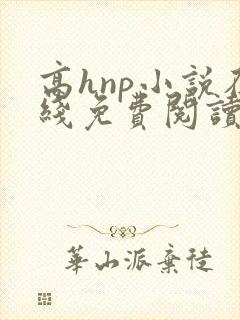 高hnp小説在
綫免費閱讀
華山派棄徒